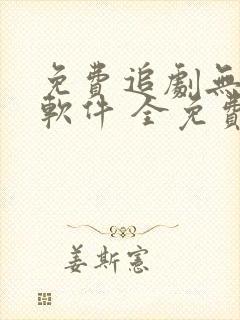 免費追劇無
軟件 全免費
姜斯憲